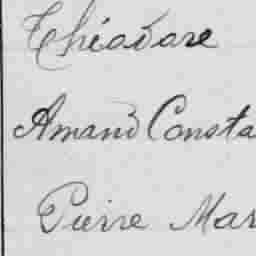 Théodore
Amand Consta
Pierre Mar